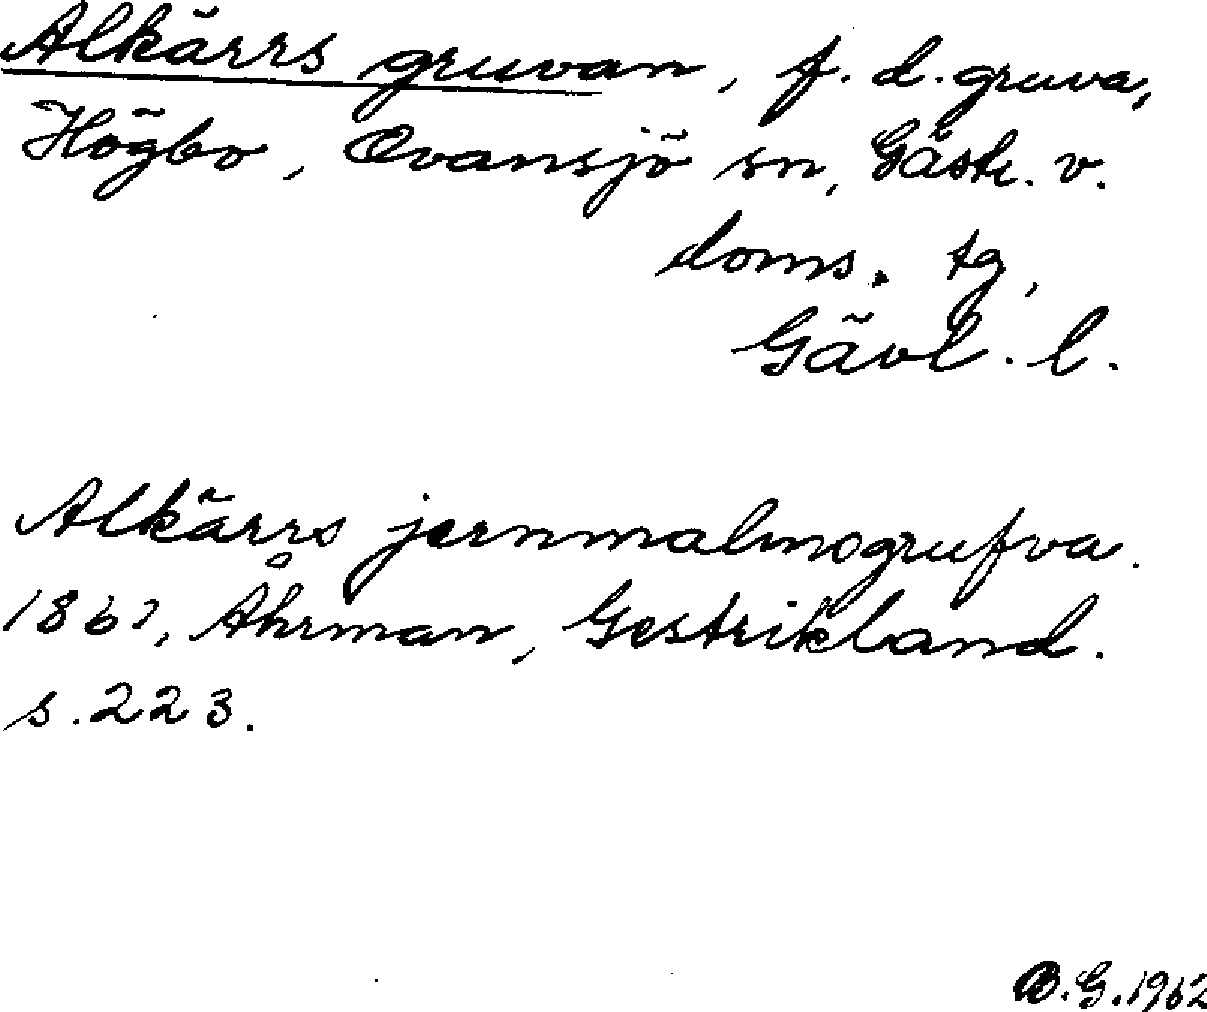 Alkärrs gruvan, f. d. gruva,
Högbo, Ovansjö sn, Gästr. v.
doms. tg,
Gävl. l.
Alkärrs jernmalmsgrufva.
1861, Åhrman, Gestrikland.
s. 223.
B.G. 1962